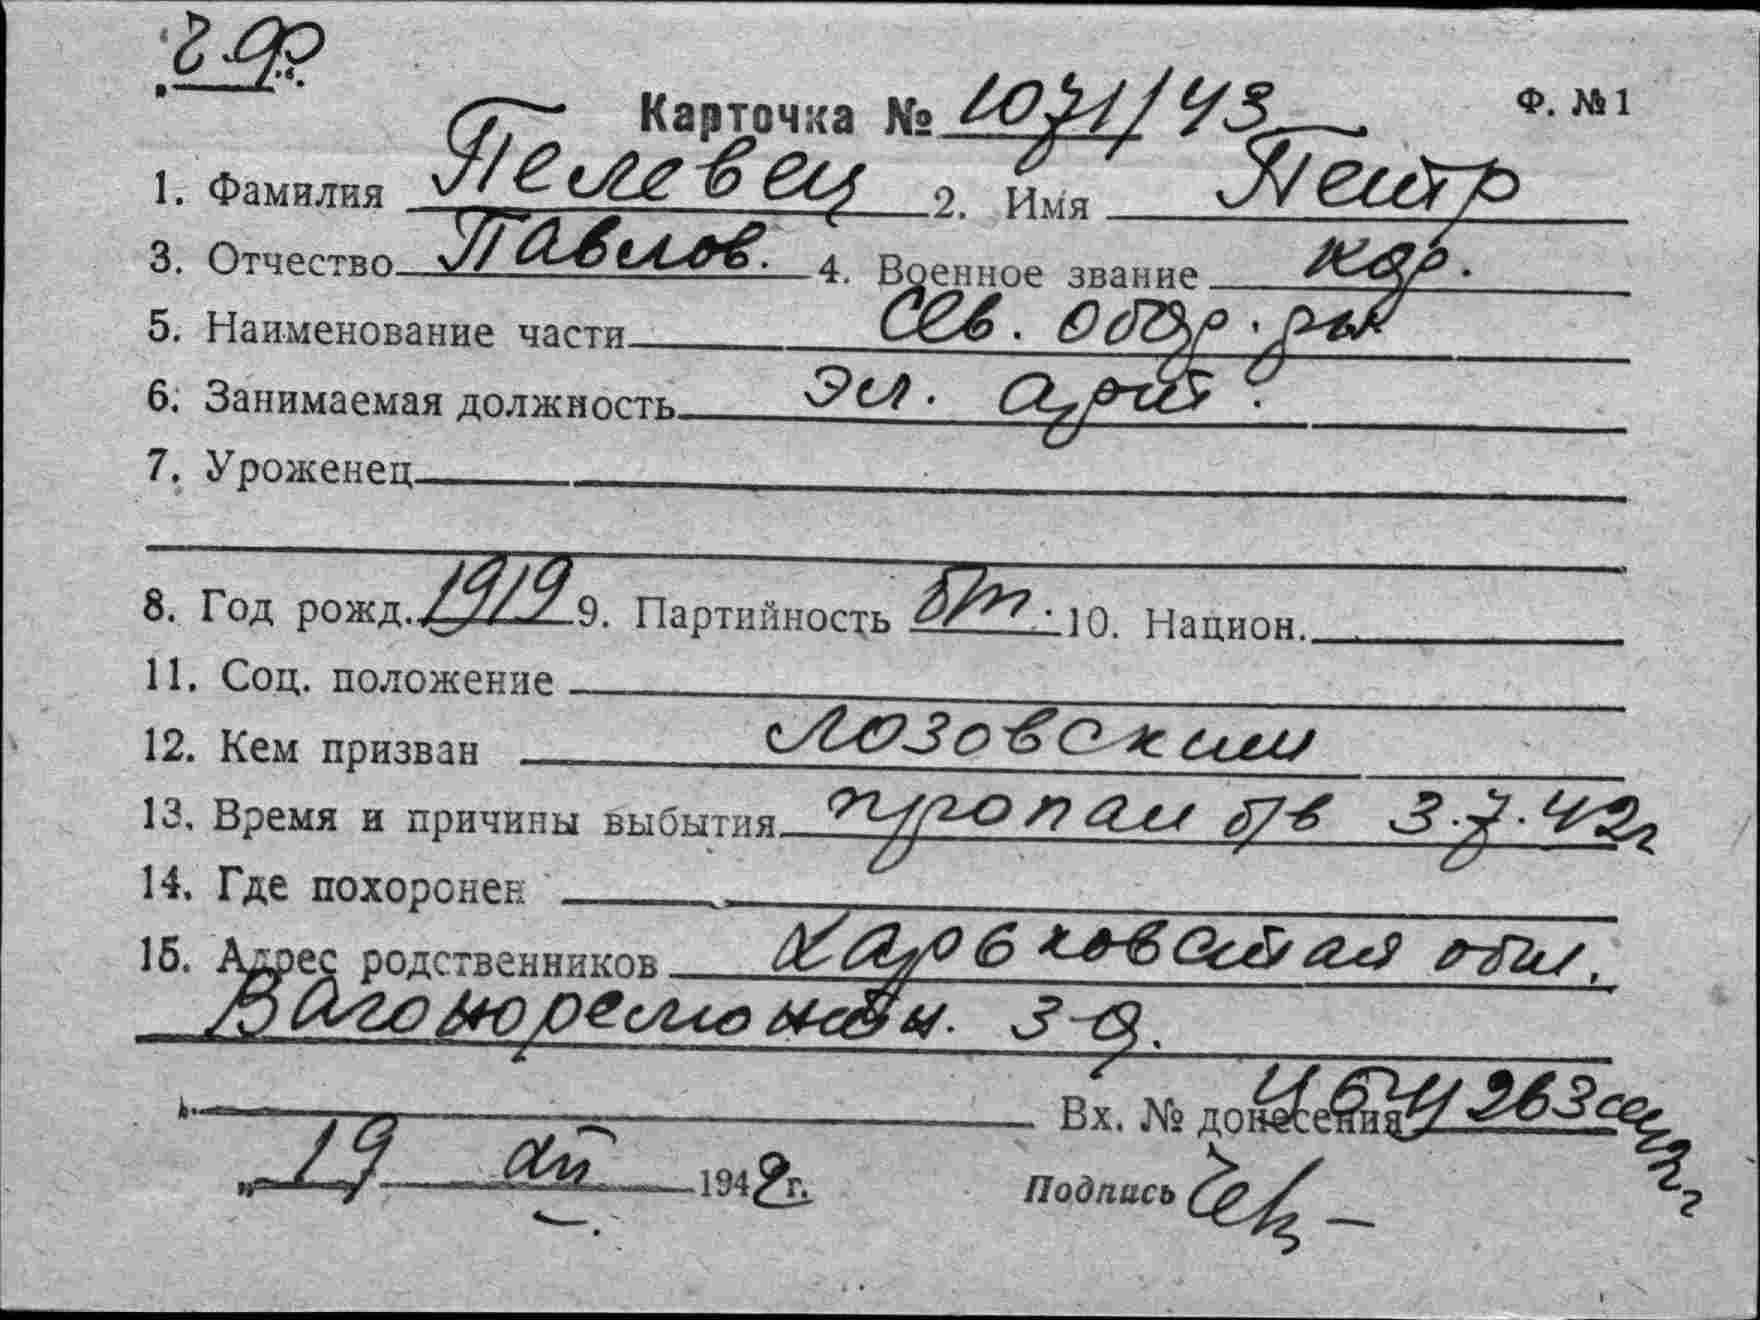 Карточка № 1071/43 Ф. №1
1. Фамилия Пелевец 2. Имя Петр
3. Отчество Павлов. 4. Военное звание кр.
5. Наименование части Сев. обор. р-н
6. Занимаемая должность эл. арт.
7. Уроженец
8. Год рожд. 1919 9. Партийность б/п. 10. Национ.
11. Соц. положение
12. Кем призван Лозовским
13. Время и причины выбытия пропал б/в 3.7.42г
14. Где похоронен
15. Адрес родственников Харьковская обл.
Вагоноремонтн. з-д.
Вх. № донесения 263сс
„19 1942г.
Подпись